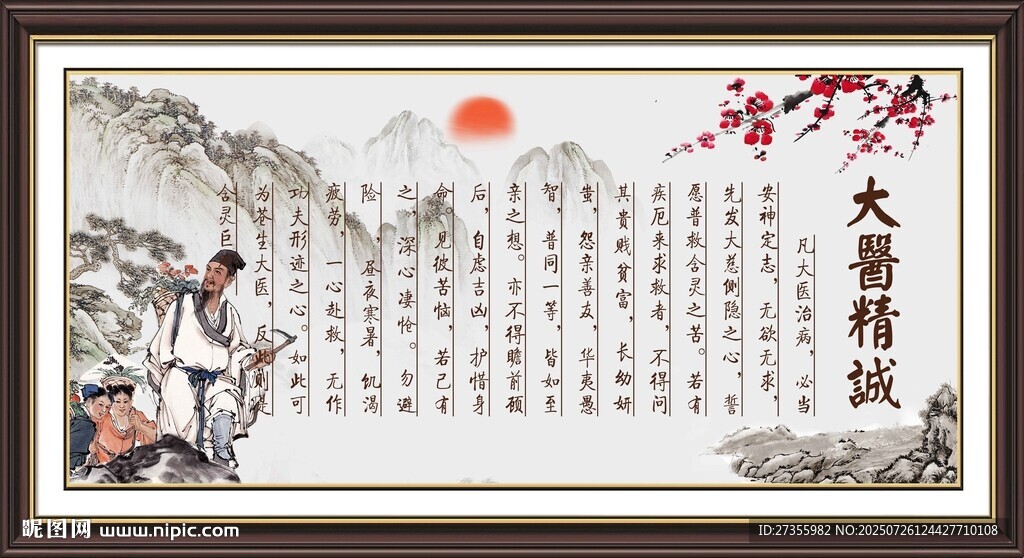 大醫精誠
凡大医治病，必当
安神定志，无欲无求，
先发大慈侧隐之心，誓
愿普救含灵之苦。若有
疾厄来求救者，不得问
其贵贱贫富，长幼妍
蚩，怨亲善友，华夷愚
智，普同一等，皆如至
亲之想。亦不得瞻前顾
后，自虑吉凶，护惜身
命。见彼苦恼，若己有
之，深心凄怆。勿避
险，昼夜寒暑，饥渴
疲劳，一心赴救，无作
功夫形迹之心。如此可
为苍生大医，反此则是
含灵巨
昵图网 www.nipic.com
ID:27355982 NO:20250726124427710108